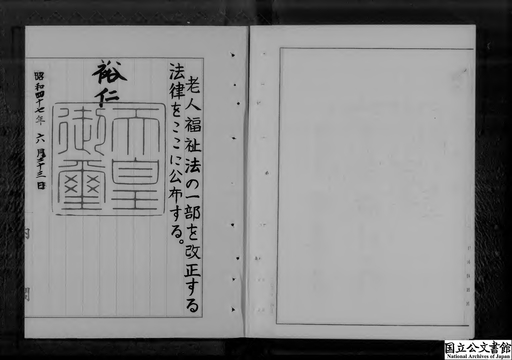 老人福祉法の一部を改正する
法律をここに公布する。
裕仁
天皇
御璽
昭和四十七年六月二十三日
内閣
国立公文書館
National Archives of Japan